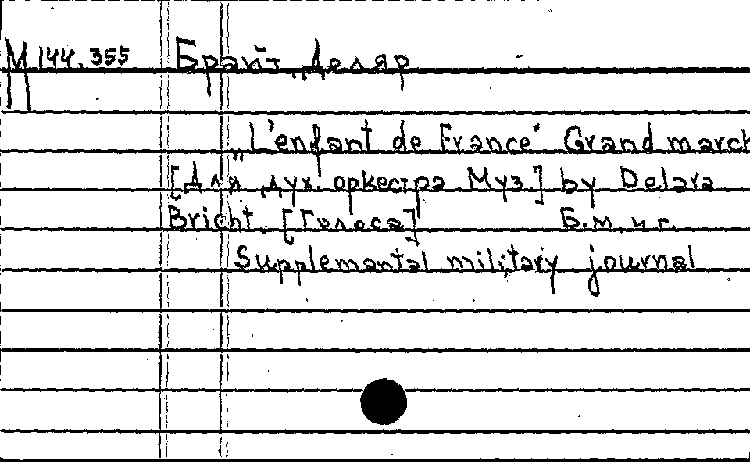 М 144.355 Брайт, Деляр
„L'enfant de France" Grand march
[Для дух. оркестра. Муз.] by Delara
Bricht. [Голоса] Б.м. и г.
Supplemental military journal